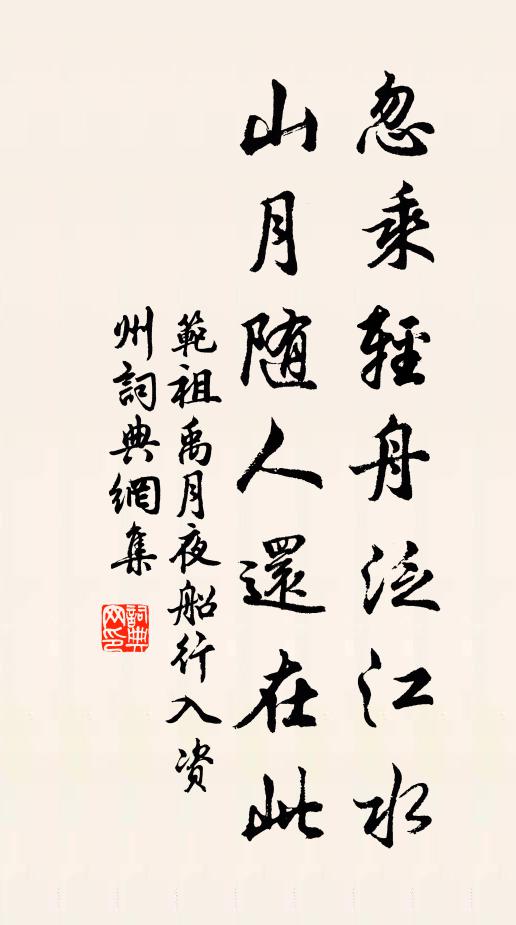 忽乘輕舟泛江水
山月随人還在此
範祖禹月夜船行入资
州詞典網集
詞典网印